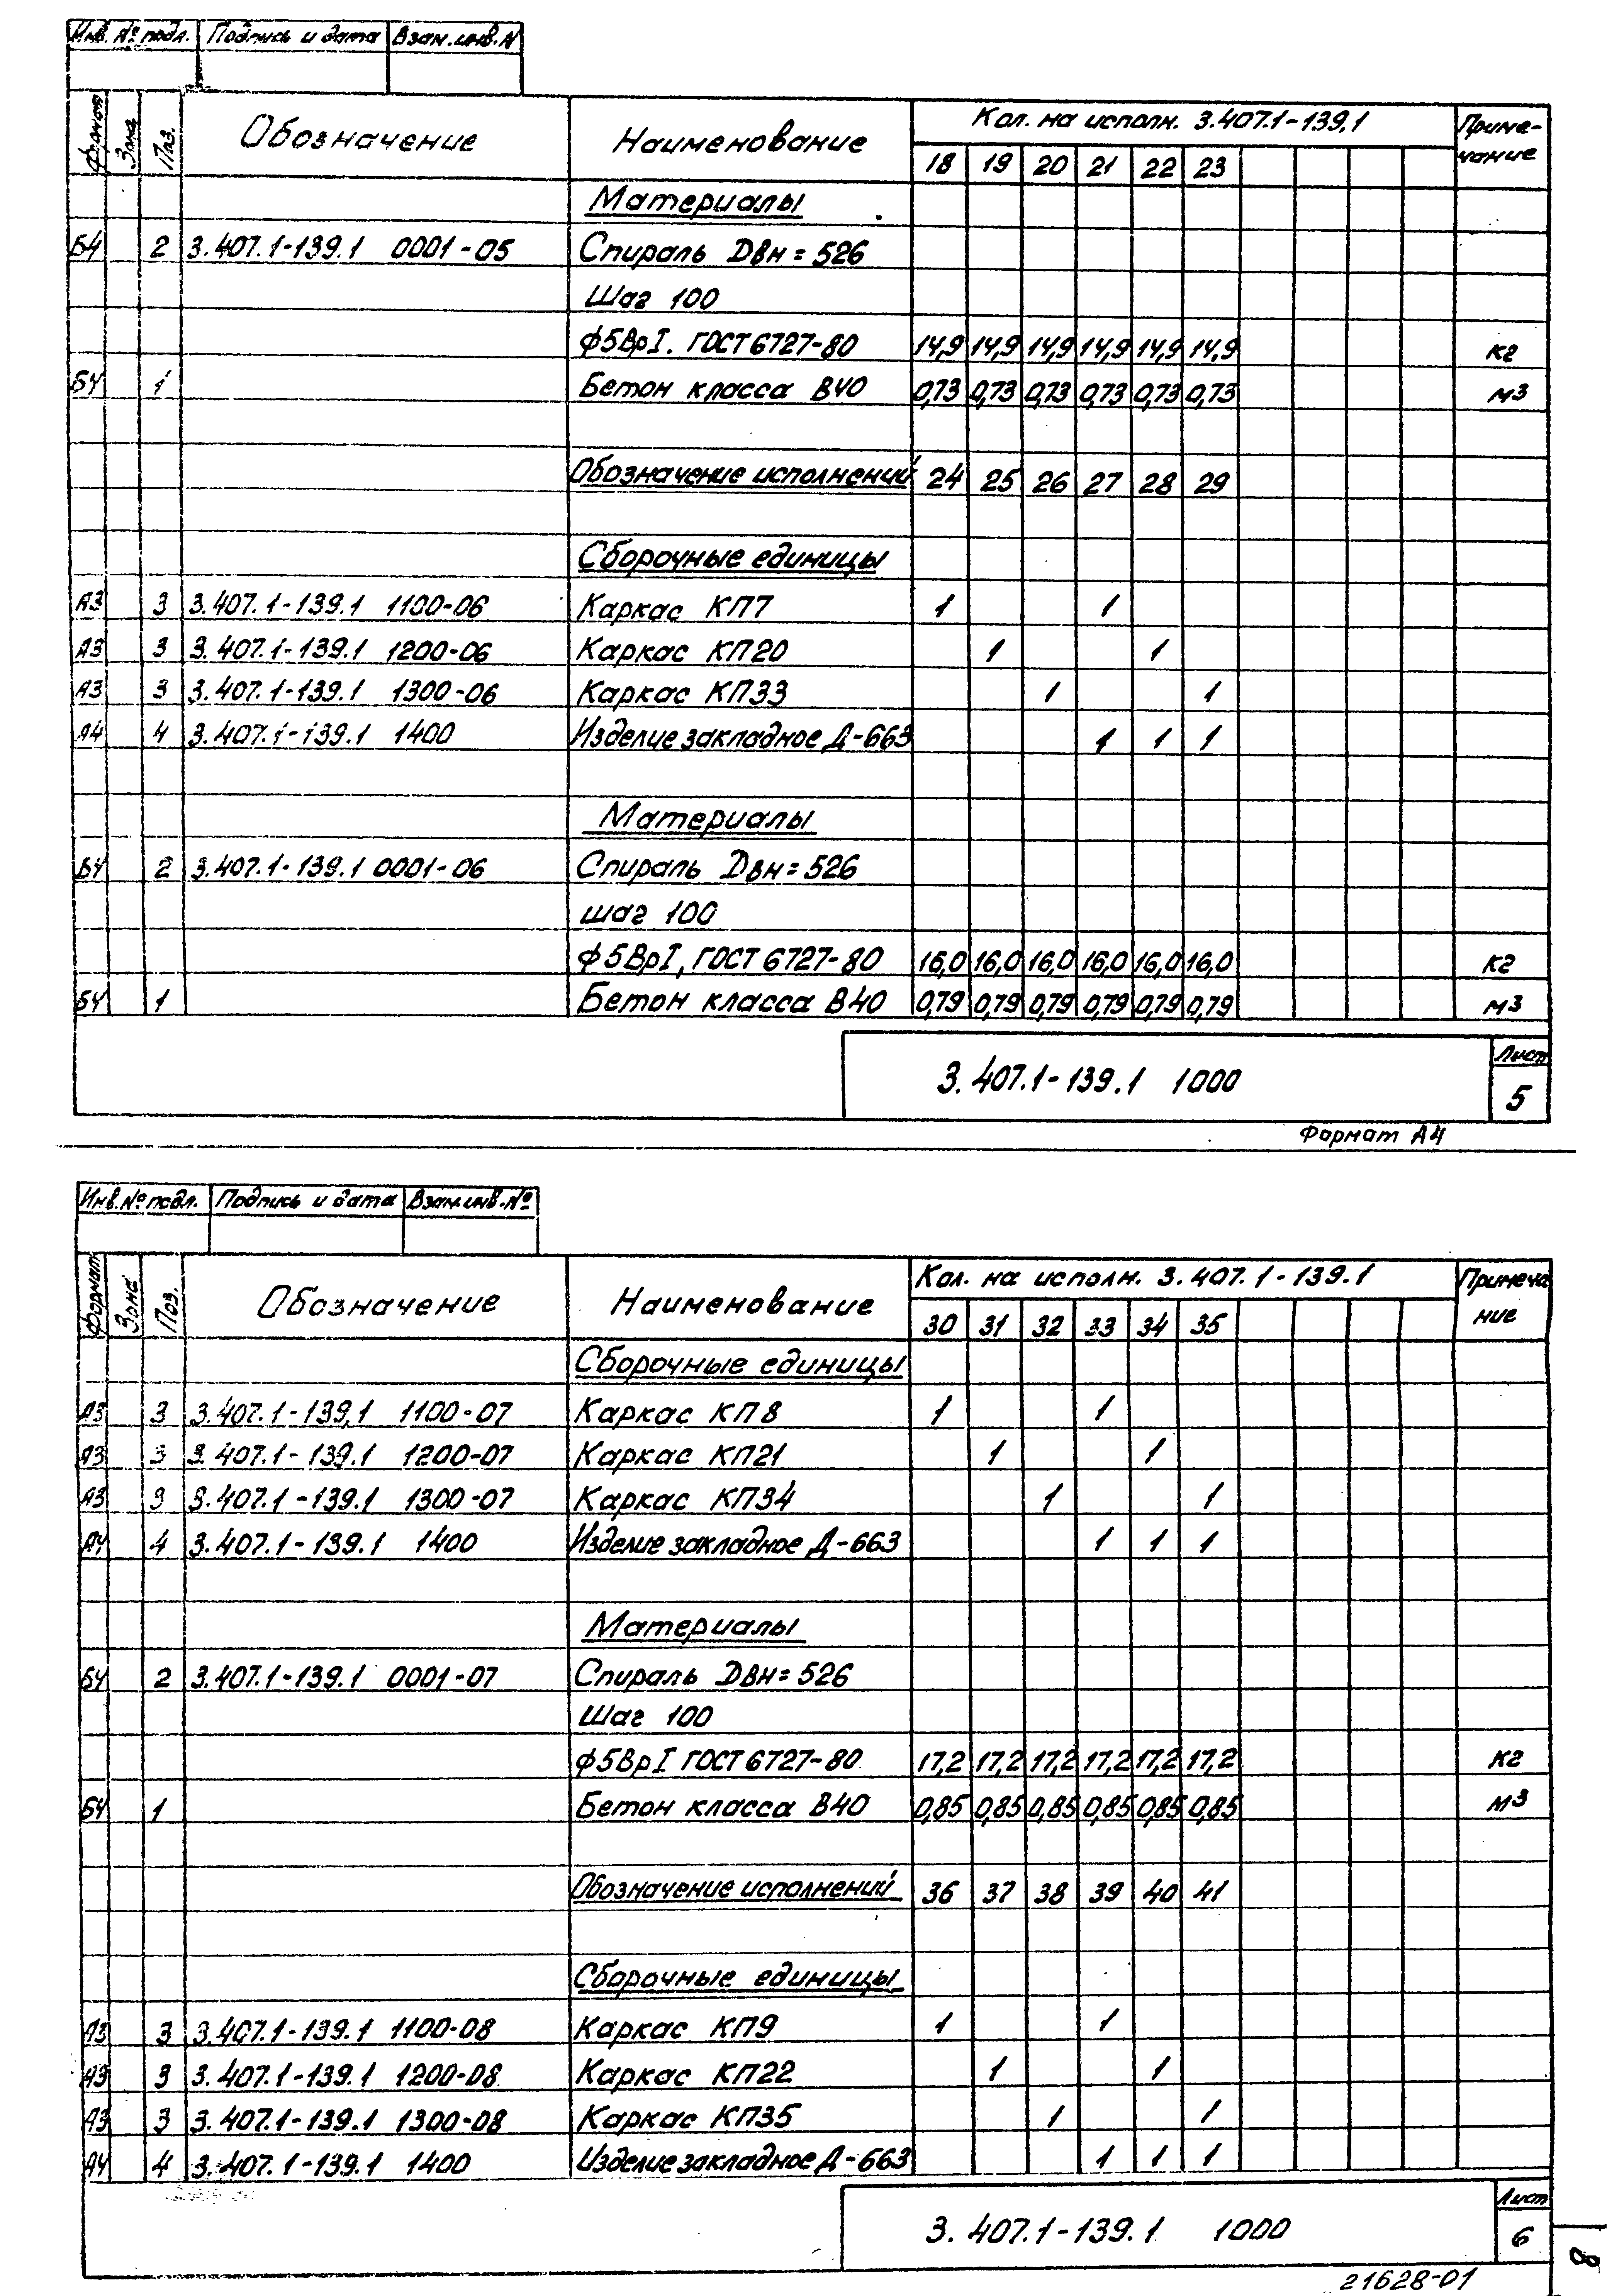 Инв. № подл. Подпись и дата Взам.инв.N
Формат Зона Поз. Обозначение Наименование Кол. на исполн. 3.407.1-139.1 Приме-
чание
18 19 20 21 22 23
Материалы
БЧ 2 3.407.1-139.1 0001-05 Спираль Dвн=526
Шаг 100
ф5ВрI. ГОСТ 6727-80 14,9 14,9 14,9 14,9 14,9 14,9 кг
БЧ 1 Бетон класса В40 0,73 0,73 0,73 0,73 0,73 0,73 м3
Обозначение исполнений 24 25 26 27 28 29
Сборочные единицы
А3 3 3.407.1-139.1 1100-06 Каркас КП7 1 1
А3 3 3.407.1-139.1 1200-06 Каркас КП20 1 1
А3 3 3.407.1-139.1 1300-06 Каркас КП33 1 1
А4 4 3.407.1-139.1 1400 Изделие закладное Д-663 1 1 1
Материалы
БЧ 2 3.407.1-139.1 0001-06 Спираль Dвн=526
шаг 100
ф5ВрI, ГОСТ 6727-80 16,0 16,0 16,0 16,0 16,0 16,0 кг
БЧ 1 Бетон класса В40 0,79 0,79 0,79 0,79 0,79 0,79 м3
3.407.1-139.1 1000 Лист
5
Формат А4
Инв.№ подл. Подпись и дата Взам.инв.№
Формат Зона Поз. Обозначение Наименование Кол. на исполн. 3.407.1-139.1 Примеча
ние
30 31 32 33 34 35
Сборочные единицы
А3 3 3.407.1-139,1 1100-07 Каркас КП8 1 1
А3 3 3.407.1-139.1 1200-07 Каркас КП21 1 1
А3 3 3.407.1-139.1 1300-07 Каркас КП34 1 1
А4 4 3.407.1-139.1 1400 Изделие закладное Д-663 1 1 1
Материалы
БЧ 2 3.407.1-139.1 0001-07 Спираль Dвн=526
Шаг 100
ф5ВрI ГОСТ 6727-80 17,2 17,2 17,2 17,2 17,2 17,2 кг
БЧ 1 Бетон класса В40 0,85 0,85 0,85 0,85 0,85 0,85 м3
Обозначение исполнений 36 37 38 39 40 41
Сборочные единицы
А3 3 3.407.1-139.1 1100-08 Каркас КП9 1 1
А3 3 3.407.1-139.1 1200-08 Каркас КП22 1 1
А3 3 3.407.1-139.1 1300-08 Каркас КП35 1 1
А4 4 3.407.1-139.1 1400 Изделие закладное Д-663 1 1 1
3.407.1-139.1 1000 Лист
6
8
21628-01